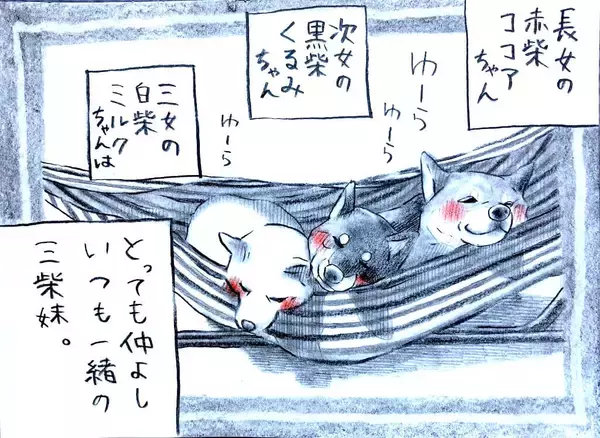 長女の
赤柴
ココア
ちゃん
次女の
黒柴
くるみ
ちゃん
三女の
白柴
ミルク
ちゃんは
ゆーら
ゆーら
ゆーら
とっても仲よし
いつも一緒の
三柴妹。